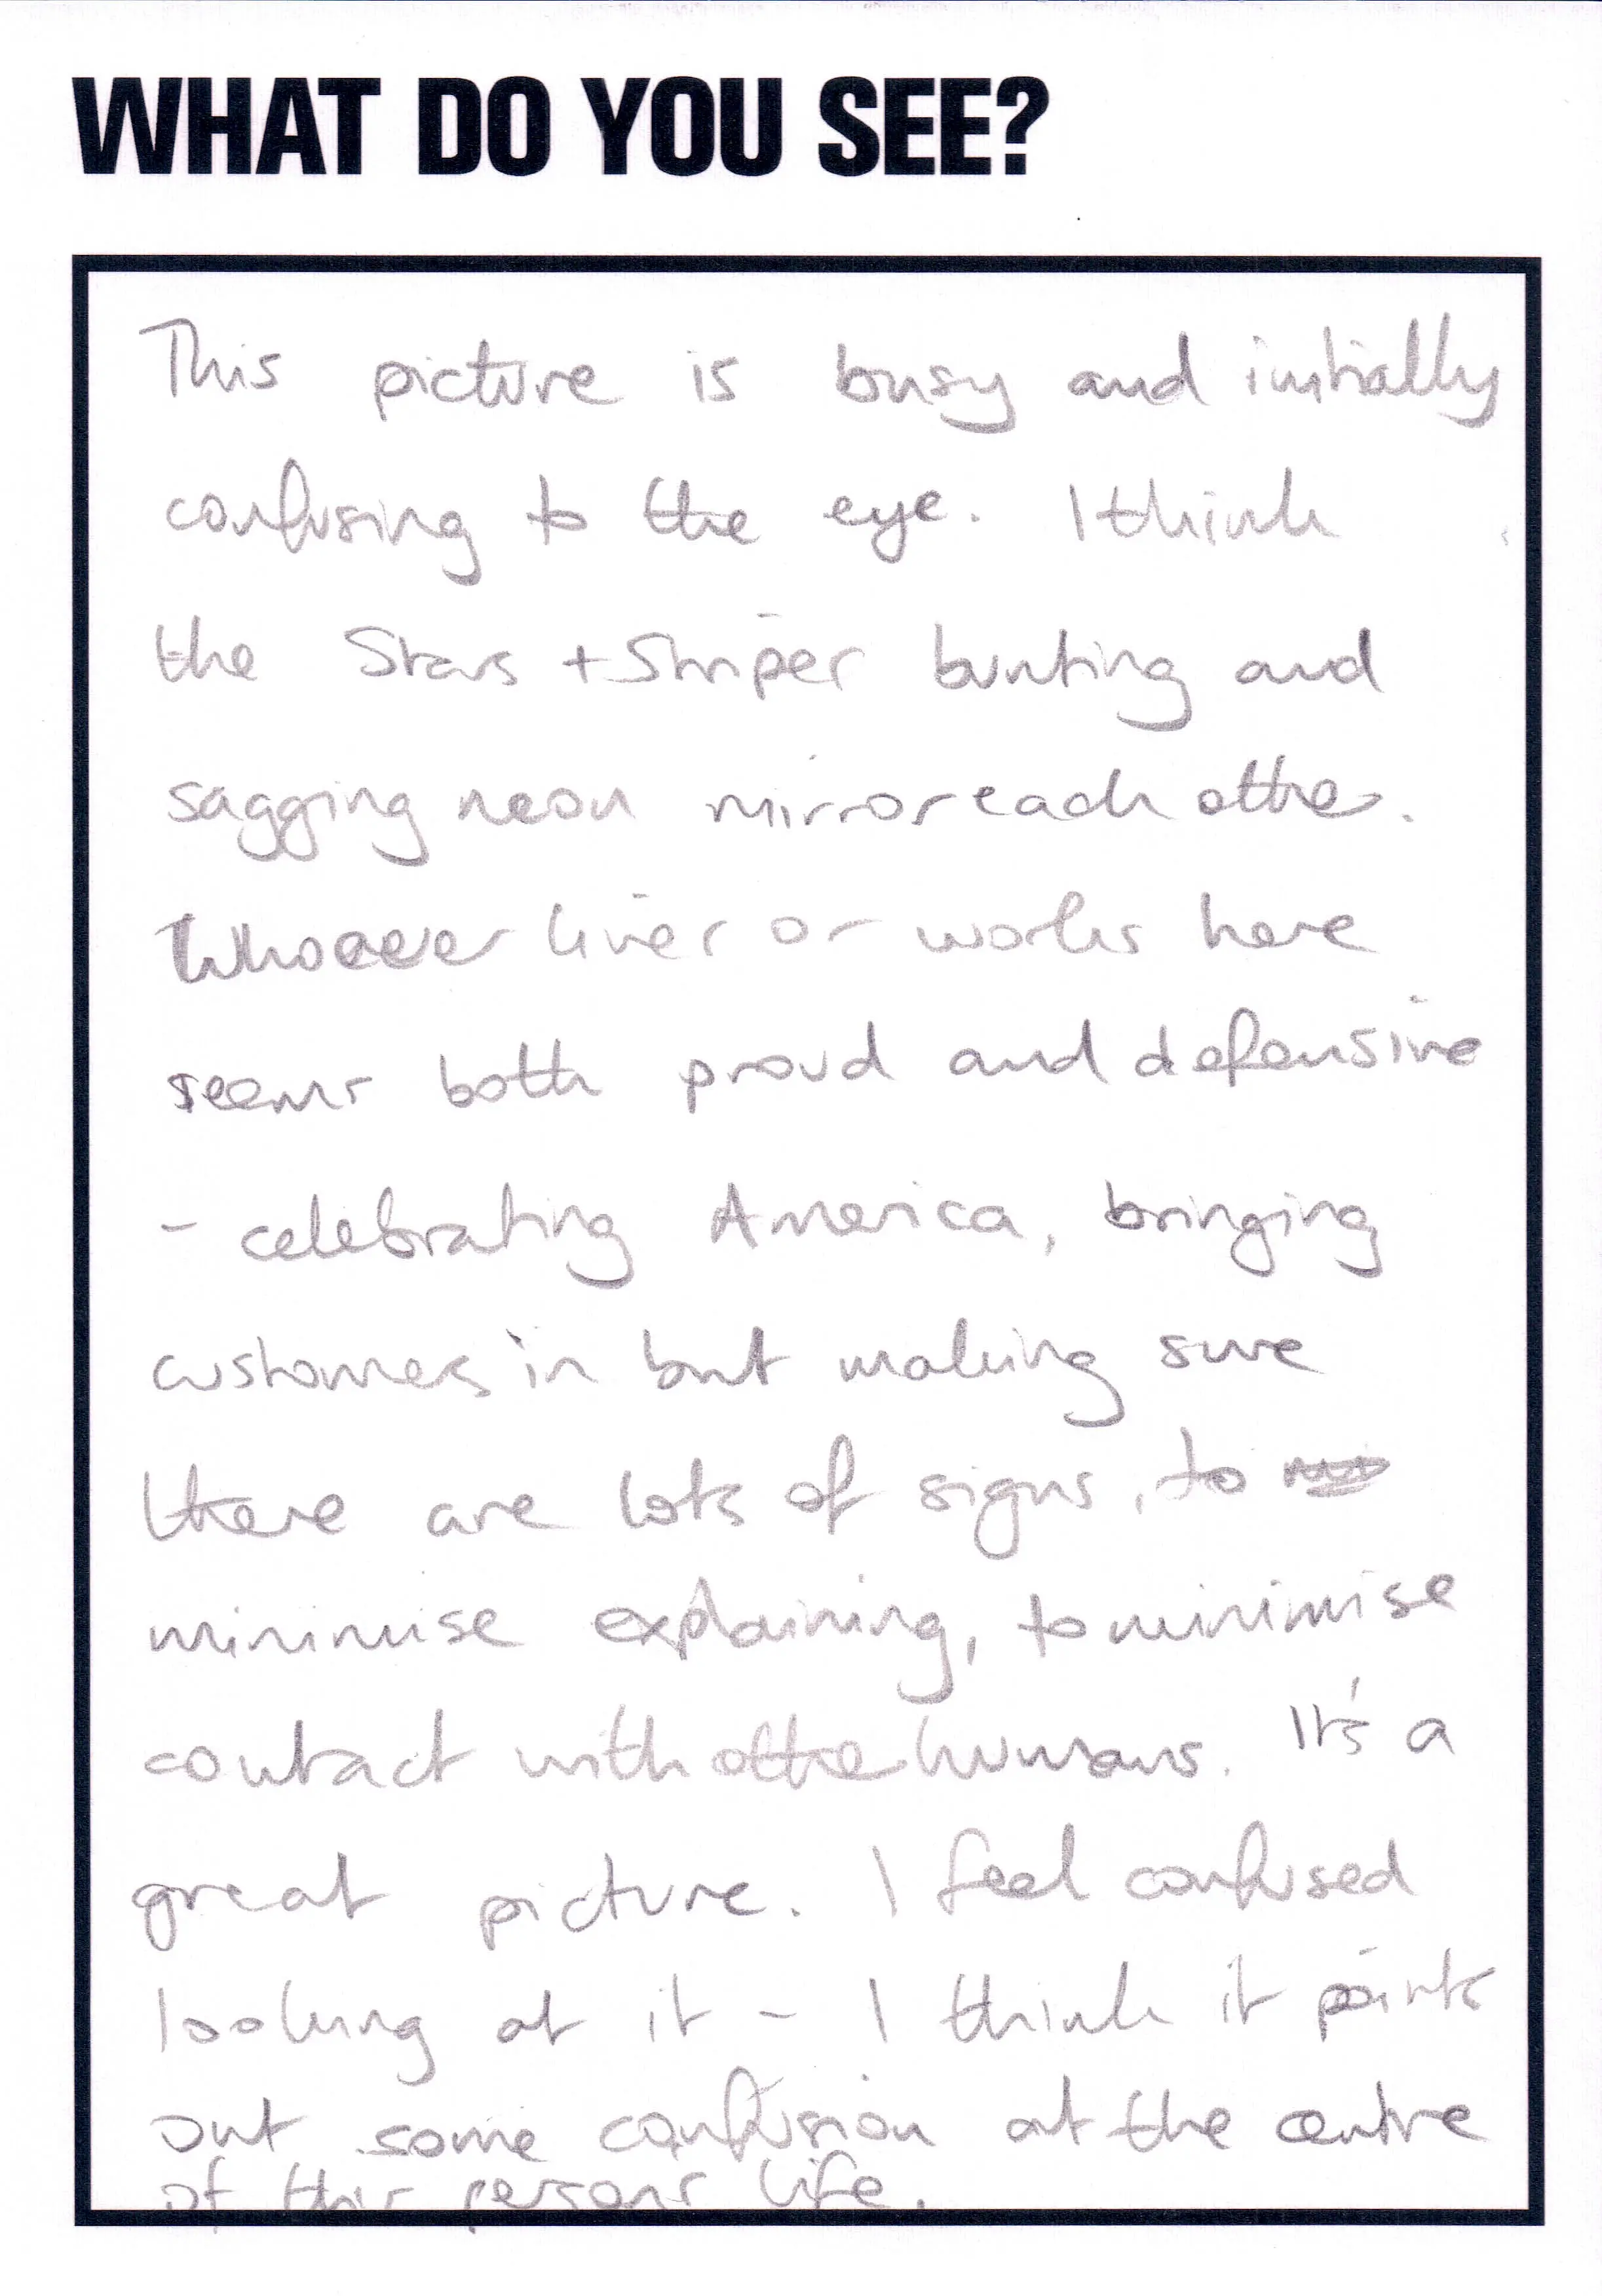 WHAT DO YOU SEE?
This picture is busy and initially
confusing to the eye. I think
the Stars + Stripes bunting and
sagging neon mirror each other.
Whoever lives or works here
seems both proud and defensive
- celebrating America, bringing
customers in but making sure
there are lots of signs, to
minimise explaining, to minimise
contact with other humans. It's a
great picture. I feel confused
looking at it - I think it points
out some confusion at the centre
of this persons life.